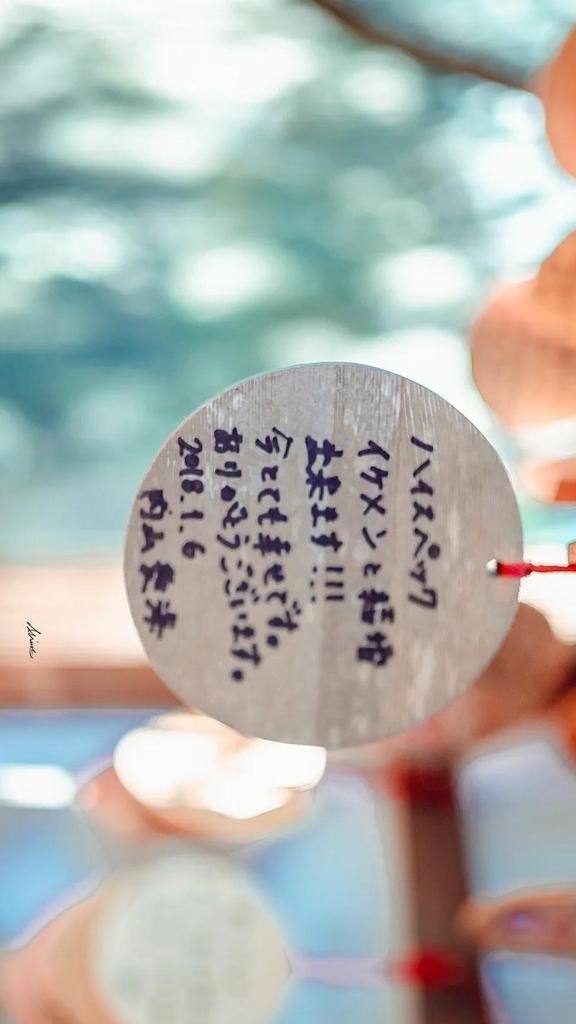 ハイスペック
イケメンと結婚
出来ます!!!
今とても幸せです。
ありがとうございます。
2018.1.6
内山愛